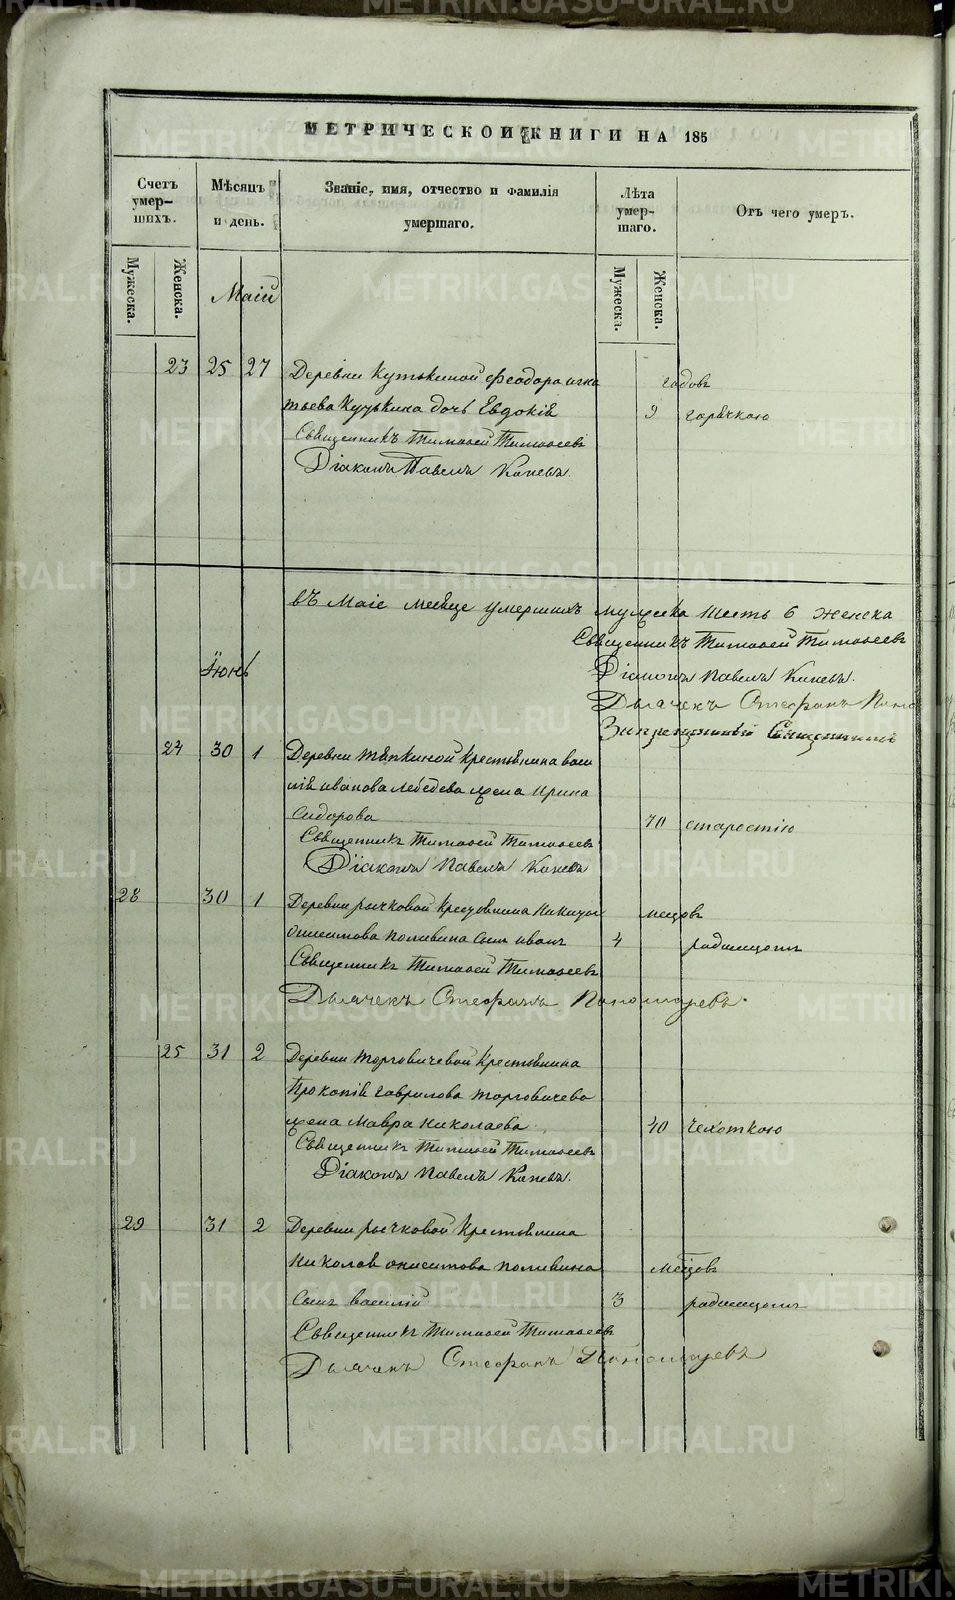 МЕТРИЧЕСКОЙ КНИГИ НА 185
Счетъ умер-шихъ.
Мѣсяцъ и день.
Званіе, имя, отчество и фамилія умершаго.
Лѣта умер-шаго.
Отъ чего умеръ.
Мужеска.
Женска.
Маій
Мужеска.
Женска.
23 25 27 Деревни Кутькиной Феодора игна годовъ
тьева Кузькина дочь Евдокія 9 горячкою
Священникъ Тимоѳей Тимоѳеевъ
Діаконъ Павелъ Каневъ.
въ Маіе месяце умершихъ мужеска шесть 6 женска
Священникъ Тимоѳей Тимоѳеевъ
Июнь Діаконъ Павелъ Каневъ.
Дьячекъ Стефанъ Поно
Священникъ
24 30 1 Деревни Тяпкиной крестьянина васи
лія иванова лебедева жена Ирина
Сидорова 70 старостію
Священникъ Тимоѳей Тимоѳеевъ
Діаконъ Павелъ Каневъ
28 30 1 Деревни рычковой крестьянина месцовъ
онисимова поливина сынъ иванъ 4 родимцомъ
Священникъ Тимоѳей Тимоѳеевъ
Дьячекъ Стефанъ Пономаревъ.
25 31 2 Деревни Торговичевой крестьянина
Прокопія гаврилова торговичева
жена Мавра николаева 40 чехоткою
Священникъ Тимоѳей Тимоѳеевъ
Діаконъ Павелъ Каневъ.
29 31 2 Деревни рычковой крестьянина
николая онисимова поливина месцовъ
сынъ василій 3 родимцомъ
Священникъ Тимоѳей Тимоѳеевъ
Дьячекъ Стефанъ Пономаревъ
METRIKI.GASO-URAL.RU